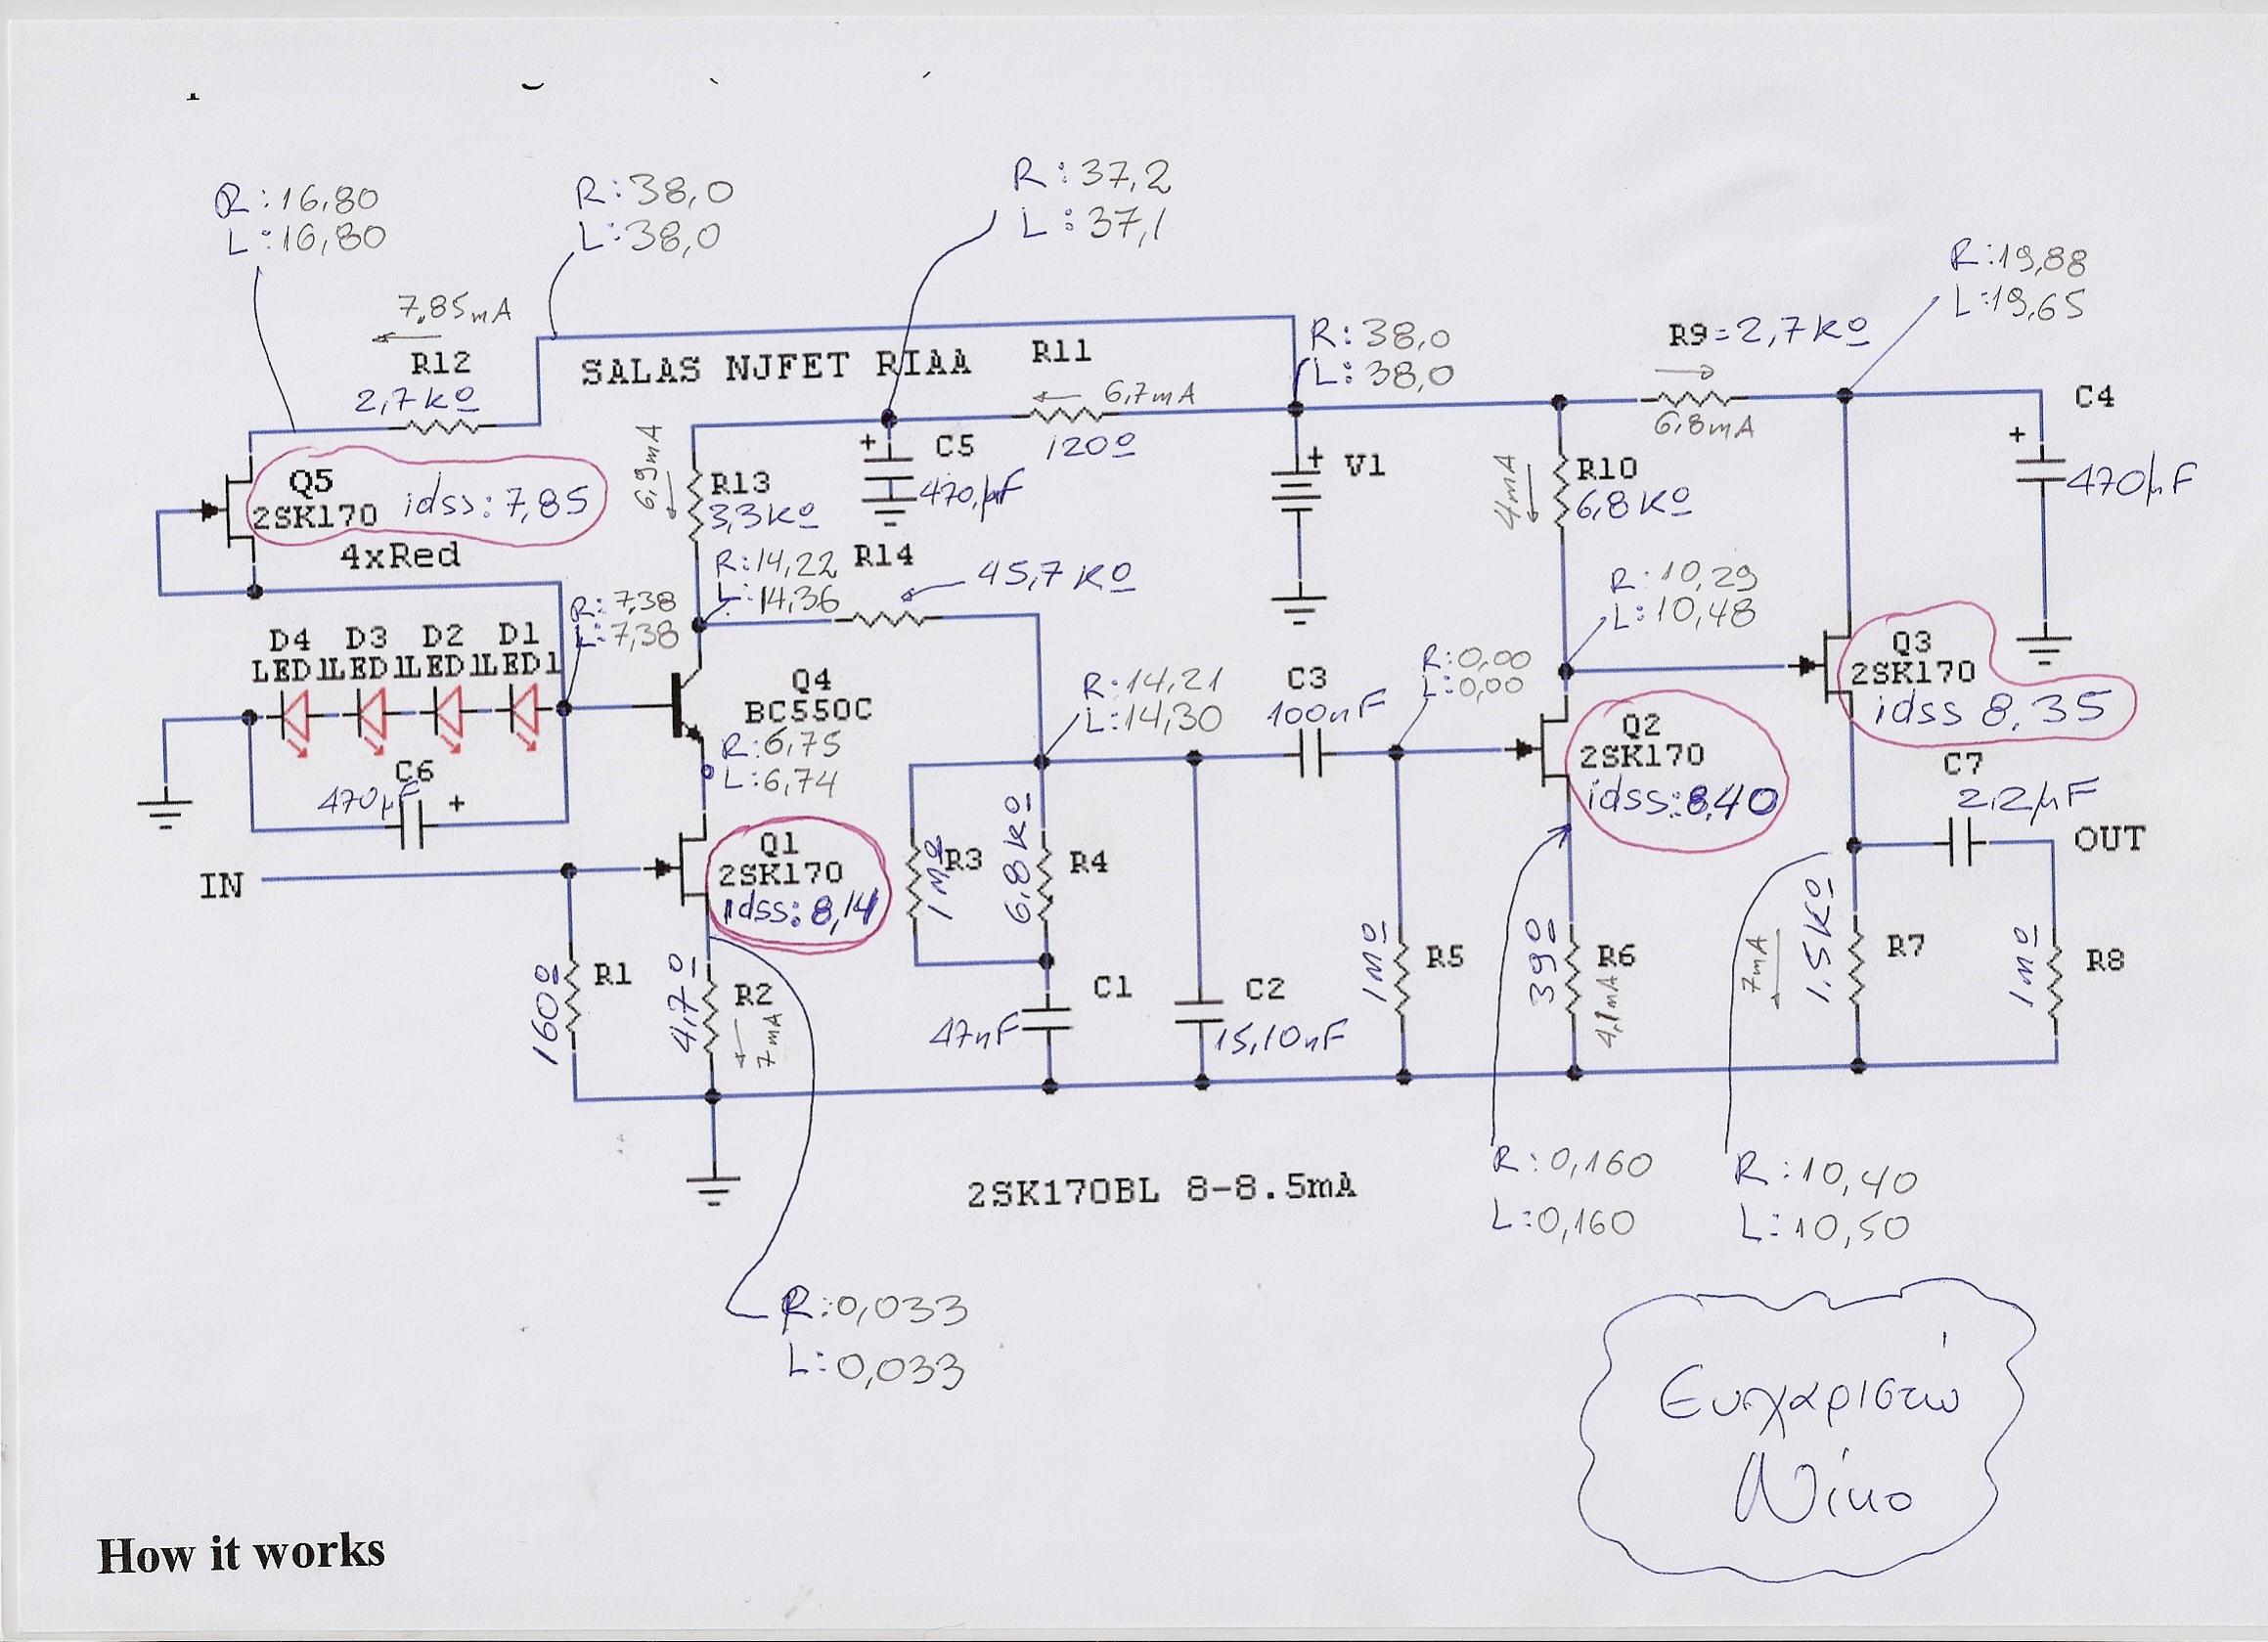 R:16,80
L:16,80
R:38,0
L:38,0
R:37,2
L:37,1
R:19,88
L:19,65
7,85mA
R12
2,7kΩ
SALAS NJFET RIAA
R11
6,7mA
120Ω
R:38,0
L:38,0
R9=2,7kΩ
6,8mA
C4
+
470μF
Q5
2SK170 idss:7,85
4xRed
6,9mA
R13
3,3kΩ
+
C5
470μF
+
V1
4mA
R10
6,8kΩ
R:14,22
L:14,36
R14
45,7kΩ
R:7,38
L:7,38
R:10,29
L:10,48
D4 D3 D2 D1
LED1 LED1 LED1 LED1
Q4
BC550C
R:6,75
L:6,74
R:14,21
L:14,30
C3
100nF
R:0,00
L:0,00
Q2
2SK170
idss:8,40
Q3
2SK170
idss 8,35
C6
470μF
+
C7
2,2μF
OUT
IN
Q1
2SK170
idss:8,14
R3
1MΩ
6,8kΩ
R4
160Ω
R1
4,7Ω
R2
7mA
C1
47nF
C2
15,10nF
1MΩ
R5
39Ω
R6
4,1mA
7mA
1.5KΩ
R7
1MΩ
R8
2SK170BL 8-8.5mA
R:0,160
L:0,160
R:10,40
L:10,50
R:0,033
L:0,033
Ευχαριστώ
Νίκο
How it works